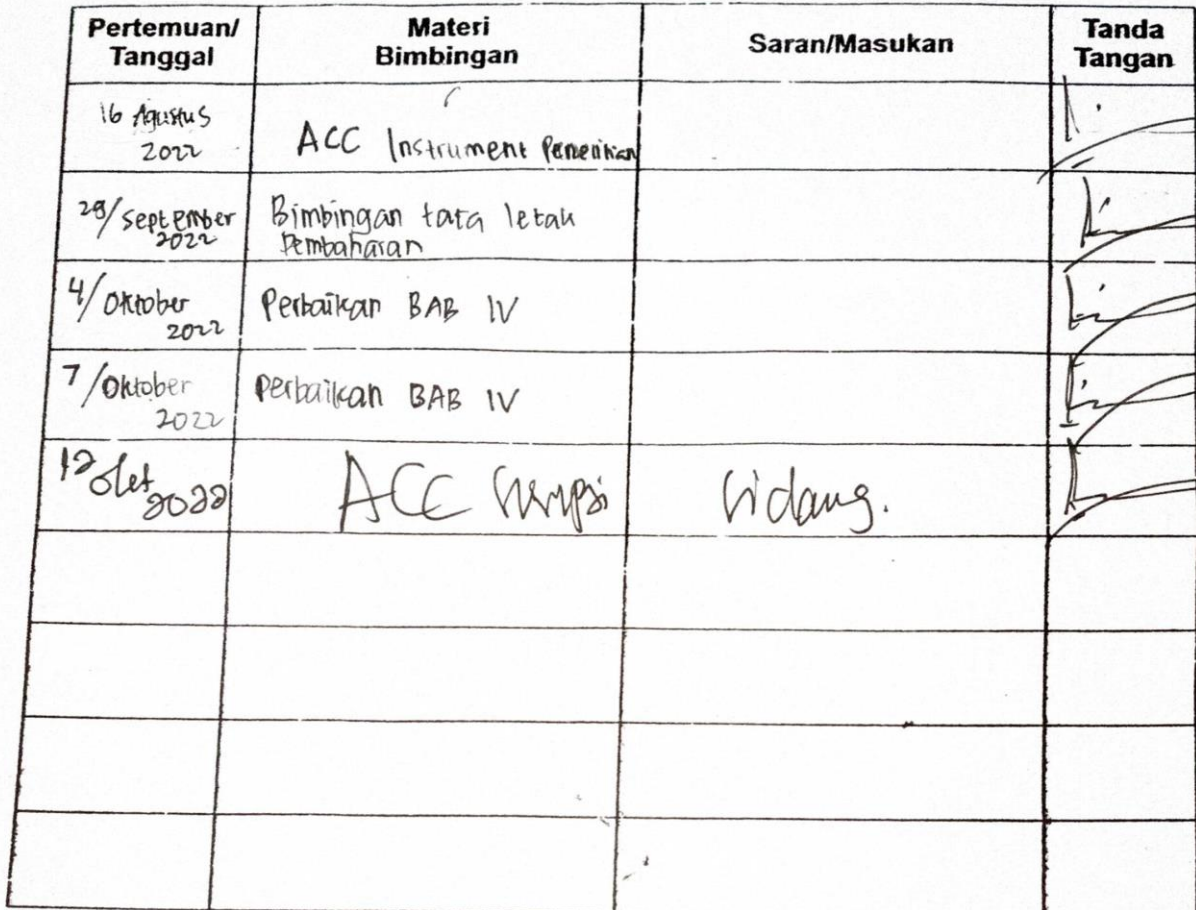 Pertemuan/
Tanggal
Materi
Bimbingan
Saran/Masukan
Tanda
Tangan
16 Agustus
2022
ACC Instrument Penelitian
29/September
2022
Bimbingan tata letak
Pembahasan
4/Oktober
2022
Perbaikan BAB IV
7/Oktober
2022
Perbaikan BAB IV
12 Okt
2022
ACC Skripsi Sidang.